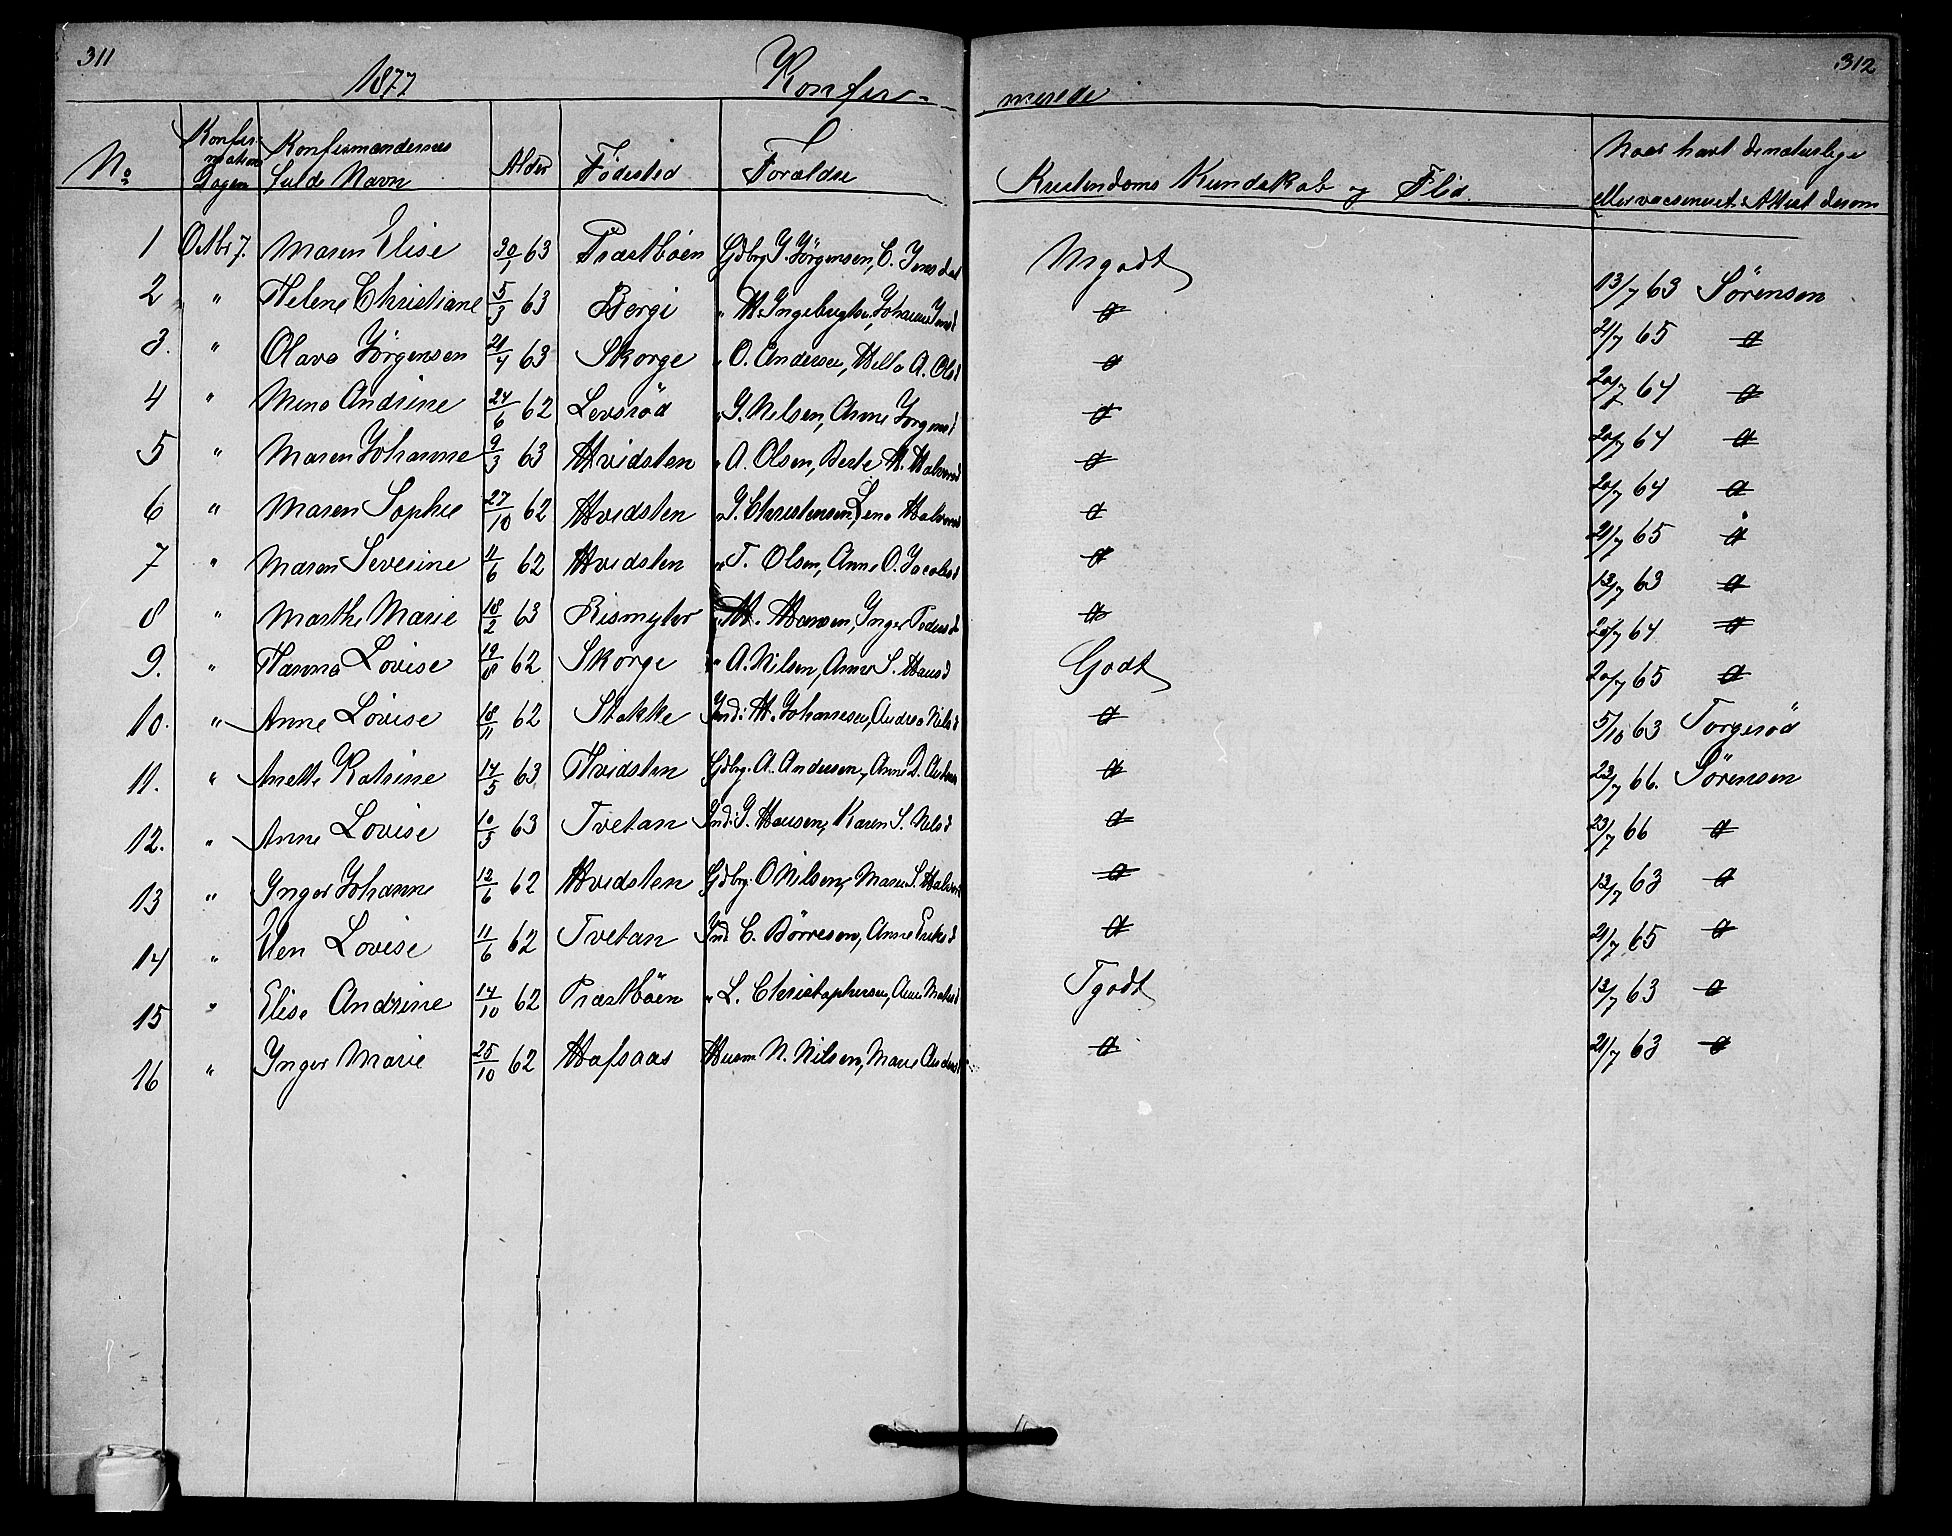 311
312
1877 Konfir-
merede
No Konfir-mations Dagen Konfirmandernes fulde Navn Alder Fødested Forældre Kristendoms Kundskab og Flid. Naar havt de naturlige eller vaccineret & Attest derom
1 Octbr 7. Maren Elise 30/1 63 Præstbøen Gdbrg J. Jörgensen, C. Jensdat Mgodt 13/7 63 Sörensen
2 " Helene Christiane 5/3 63 Bergi " H. Ingebregtsen, Johanne Jensd d 21/7 65 d
3. " Olava Jörgensen 21/4 63 Skorge " O. Andersen, Helta A. Olsd d 20/7 64 d
4 " Mina Andrine 24/6 62 Levsröd " J. Nilsen, Anne Jörgensd d 20/7 64 d
5 " Maren Johanne 9/3 63 Hvidsten " A. Olsen, Berte H. Halvorsd d 20/7 64 d
6 " Maren Sophie 27/10 62 Hvidsten " J. Christensen, Lena Halvorsd d 21/7 65 d
7 " Maren Severine 11/6 62 Hvidsten " T. Olsen, Anne O. Jacobsd d 13/7 63 d
8 " Marthe Marie 18/2 63 Rismyhr " H. Hansen, Inger Pedersd d 20/7 64 d
9. " Hanna Lovise 19/8 62 Skorge " A. Nilsen, Anne S. Hansd Godt 20/7 65 d
10. " Anne Lovise 18/11 62 Stokke Ind: H. Johannesen, Andrea Nilsd d 5/10 63 Torgeröd
11. " Anette Katrine 14/5 63 Hvidsten Gdbrg. A. Andersen, Anne D. d 23/7 66. Sörensen
12. " Anne Lovise 10/5 63 Tvetan Ind: J. Hansen, Karen S. Nilsd d 23/7 66 d
13 " Inger Johanne 12/6 62 Hvidsten Gdbrg. O Nilsen, Maren S. Halvorsd d 13/7 63 d
14 " Elen Lovise 11/6 62 Tvetan Ind C. Börresen, Anne Eriksd d 21/7 65 d
15 " Elise Andrine 14/10 62 Præstbøen " L. Christophersen, Anne Matisd Tgodt 13/7 63 d
16 " Inger Marie 25/10 62 Hafsaas Husm. N. Nilsen, Maren Andersd d 21/7 63 d